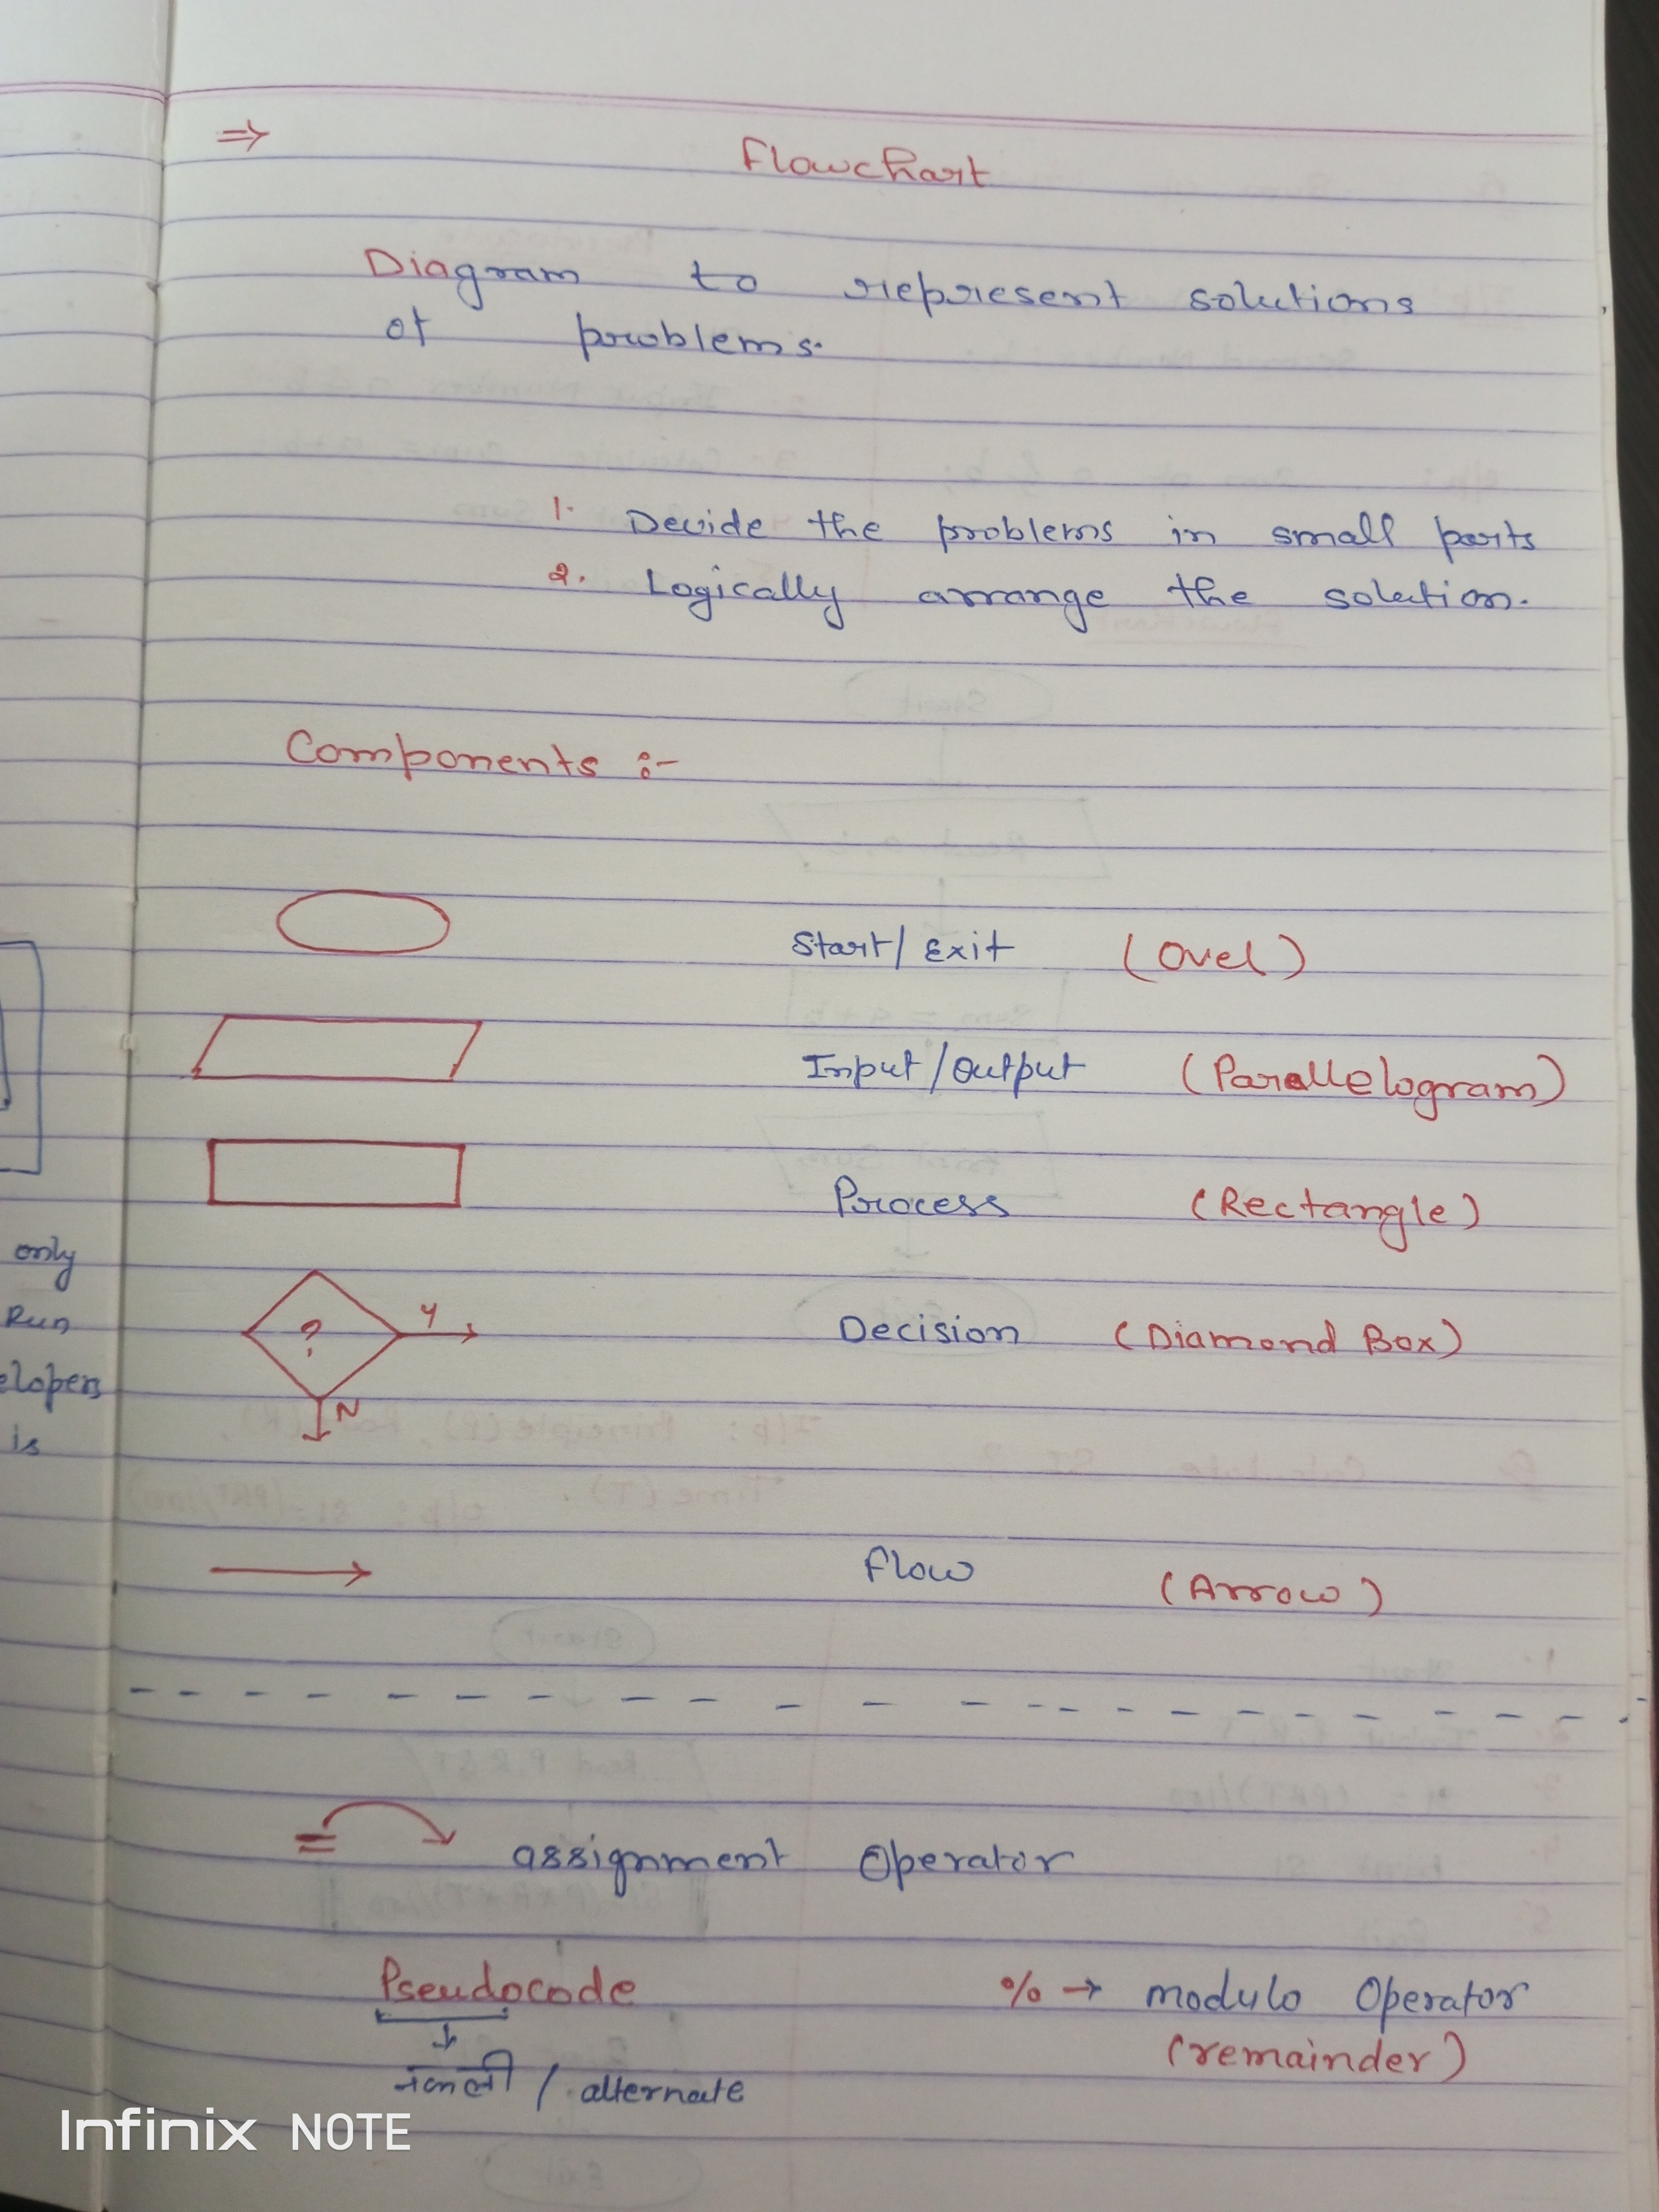 ⇒ Flowchart
Diagram to represent solutions
of problems.
1. Devide the problems in small parts
2. Logically arrange the solution.
Components :-
Start/ Exit (Ovel)
Input/Output (Parallelogram)
Process (Rectangle)
only
? Y Decision (Diamond Box)
Run
elopers
N
is
Flow (Arrow)
= assignment Operator
Pseudocode % → modulo Operator
(remainder)
नकली / alternate
Infinix NOTE